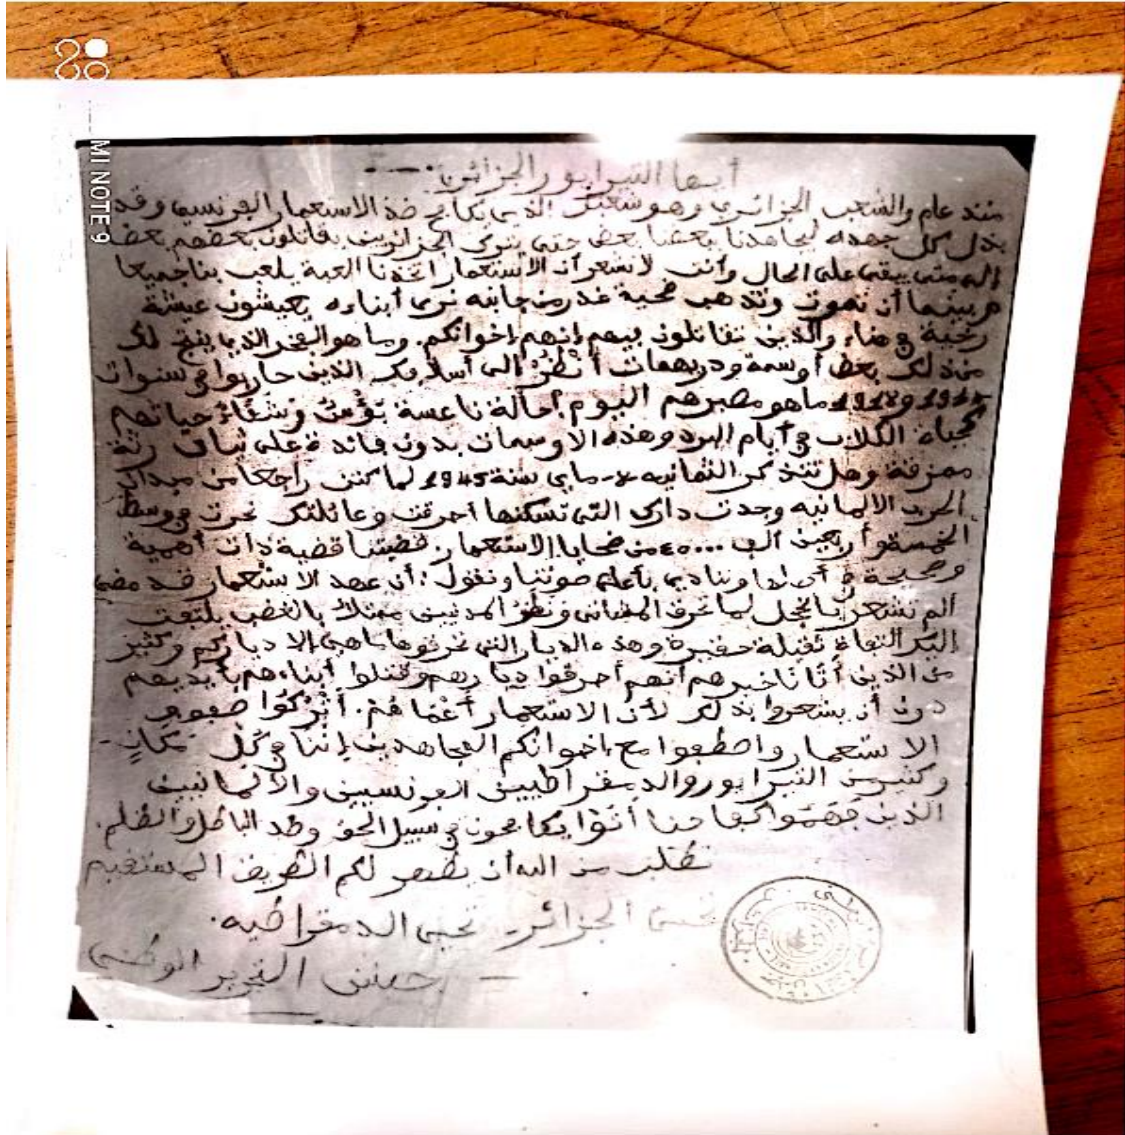 MI NOTE 9
أيها التيرايور الجزائري:
منذ عام والشعب الجزائري وهو شعبك الذي يكافح ضد الاستعمار الفرنسي وقد
بذل كل جهده ليجاهدنا ببعضنا بعض حتى يتركو الجزائريين يقاتلون بعضهم بعضا
إلى متى يبقى على الحال وأنت لا تشعر أن الاستعمار اتخذنا لعبة يلعب بنا جميعا
فبينما أن نموت وتذهب ضحية غدر من جانبه نرى أبناءه يعيشون عيشة
رخية والذين تقاتلون فيهم إنهم إخوانكم. وما هو الفخر الذي ينتج لك
من ذلك بعض أوسمة ودريهمات أنظر إلى أسلافك الذين حاربوا في سنوات
1914 و 1918 ما هو مصيرهم اليوم؟ حالة تاعسة بؤس وشقاء حياتهم
كحياة الكلاب في أيام البرد وهذه الاوسمات بدون فائدة على ثياب رثة
ممزقة وهل تتذكر الثمانية 8 ماي سنة 1945 لما كنت راجعا من ميدان
الحرب الالمانيه وجدت دارك التي تسكنها أحرقت وعائلتك في وسط
الخمسة وأربعين ألف من ضحايا الاستعمار. قضيتنا قضية ذات أهمية
وصحيحة وننادي بأعلى صوتنا ونقول: أن عهد الاستعمار قد مضى
ألم تشعر بالخجل لما تحرق المشاتي ونظر المدنيين ممتلك بالغضب يلتفت
إليك التفاة ثقيلة حقيرة وهذه الديار التي تحرقوها ما هي إلا دياركم وكثير
من الذين أتانا خبرهم أنهم أحرقوا ديارهم وقتلوا أبناءهم بأيديهم
دون أن يشعروا بذلك لأن الاستعمار أعماهم. أتركوا صفوف
الاستعمار واصطفوا مع إخوانكم المجاهدين إننا في كل مكان
وكثير من التيرايور والدمقراطيين الفرنسيين والألمانيين
الذين فهموا كفاحنا أتوا يكافحون في سبيل الحق وضد الباطل والظلم.
نطلب من الله أن يظهر لكم الطريق المستقيم
تحيى الجزائر. تحيى الدمقراطيه.
جيش التحرير الوطني